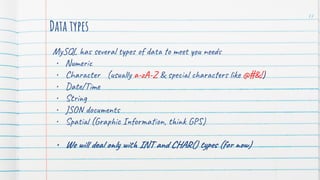 11
Data types
MySQL has several types of data to meet you needs
• Numeric
• Character (usually a-zA-Z & special characters like @#&!)
• Date/Time
• String
• JSON documents
• Spatial (Graphic Information, think GPS)
• We will deal only with INT and CHAR() types (for now)